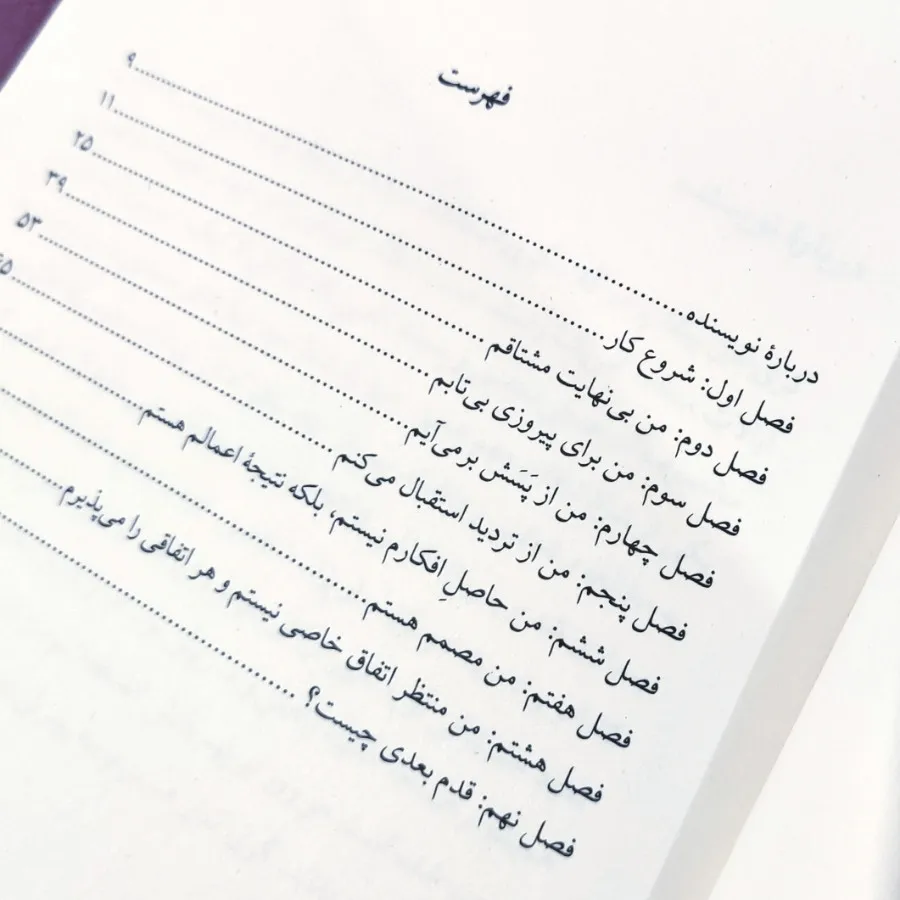 فهرست
دربارهٔ نویسنده..........۹
فصل اول: شروع کار..........۱۱
فصل دوم: من بی‌نهایت مشتاقم..........۲۵
فصل سوم: من برای پیروزی بی‌تابم..........۳۹
فصل چهارم: من از پَسَش برمی‌آیم..........۵۳
فصل پنجم: من از تردید استقبال می‌کنم..........
فصل ششم: من حاصلِ افکارم نیستم، بلکه نتیجهٔ اعمالم هستم..........
فصل هفتم: من مصمم هستم..........
فصل هشتم: من منتظر اتفاق خاصی نیستم و هر اتفاقی را می‌پذیرم..........
فصل نهم: قدم بعدی چیست؟..........